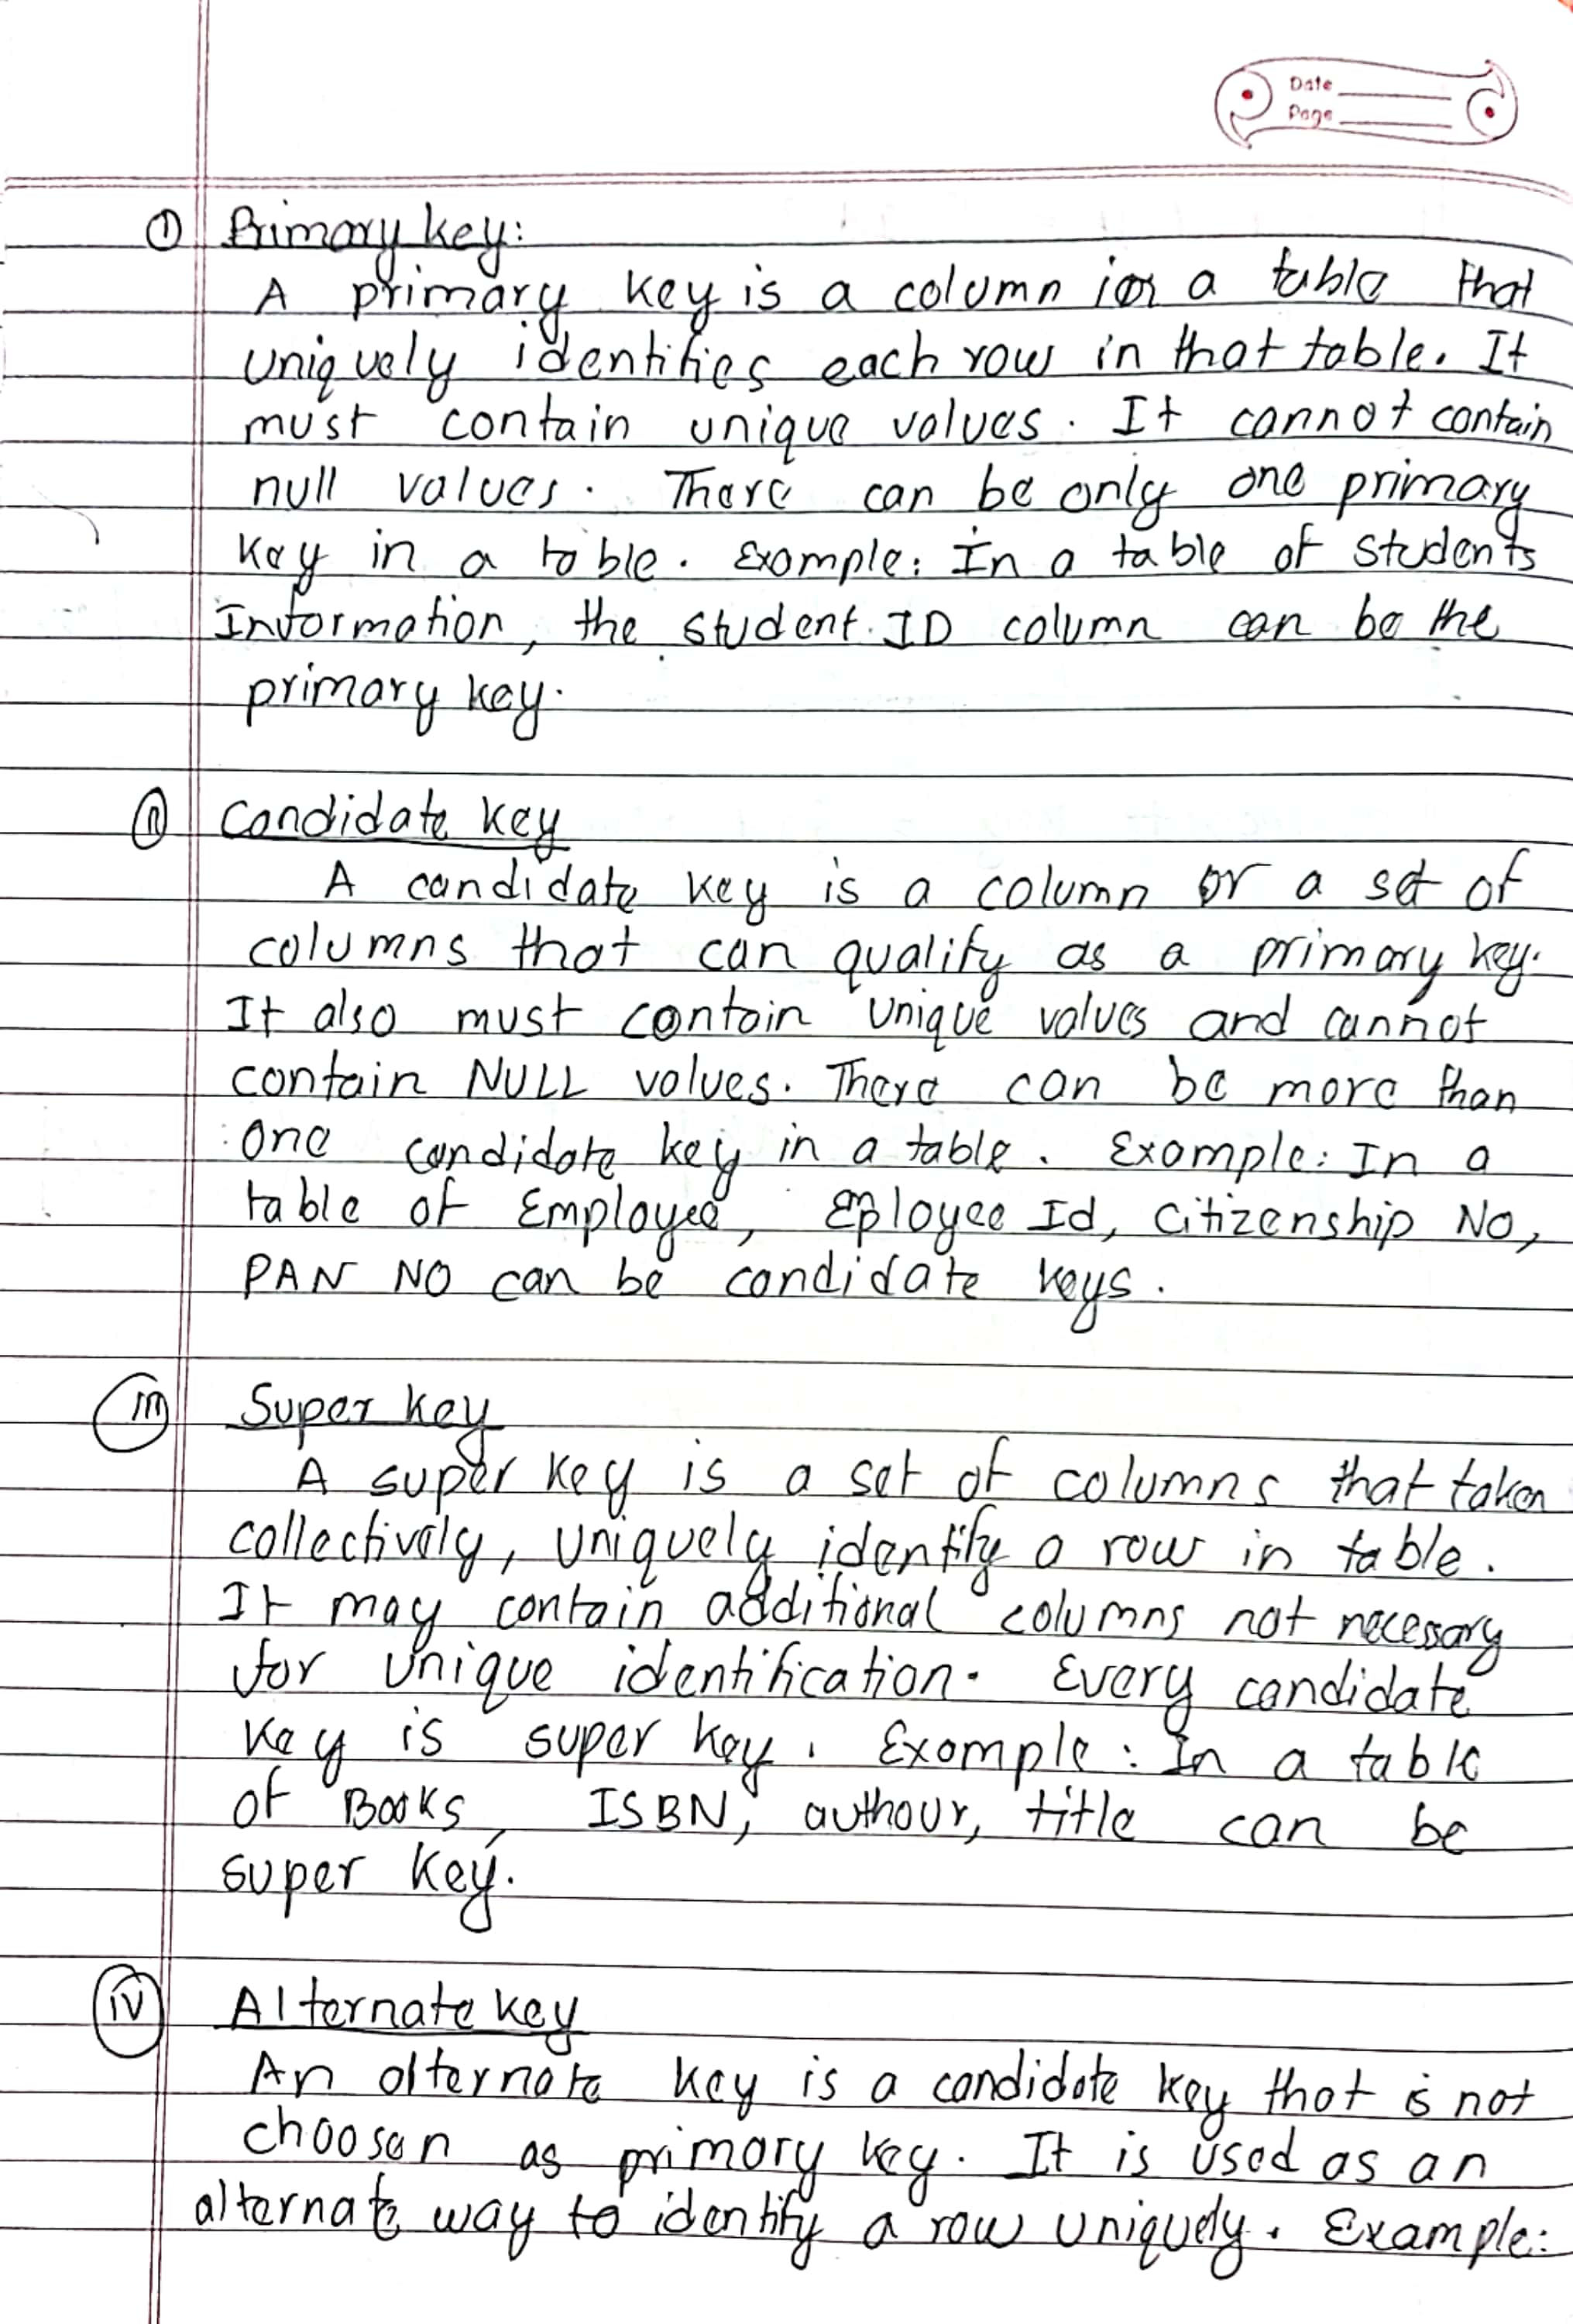 Date
Page
① Primary key:
A primary key is a column in a table that
uniquely identifies each row in that table. It
must contain unique values. It cannot contain
null values. There can be only one primary
key in a table. Example: In a table of students
Information, the student ID column can be the
primary key.
ⓘⓘ Candidate key
A candidate key is a column or a set of
columns that can qualify as a primary key.
It also must contain unique values and cannot
contain NULL values. There can be more than
one candidate key in a table. Example: In a
table of Employee, Eployee Id, Citizenship No,
PAN NO can be candidate keys.
iii Super key
A super key is a set of columns that taken
collectively, uniquely identify a row in table.
It may contain additional columns not necessary
for unique identification. Every candidate
key is super key. Example: In a table
of Books, ISBN, authour, title can be
super key.
iv Alternate key
An alternate key is a candidate key that is not
choosen as primary key. It is used as an
alternate way to identify a row uniquely. Example: